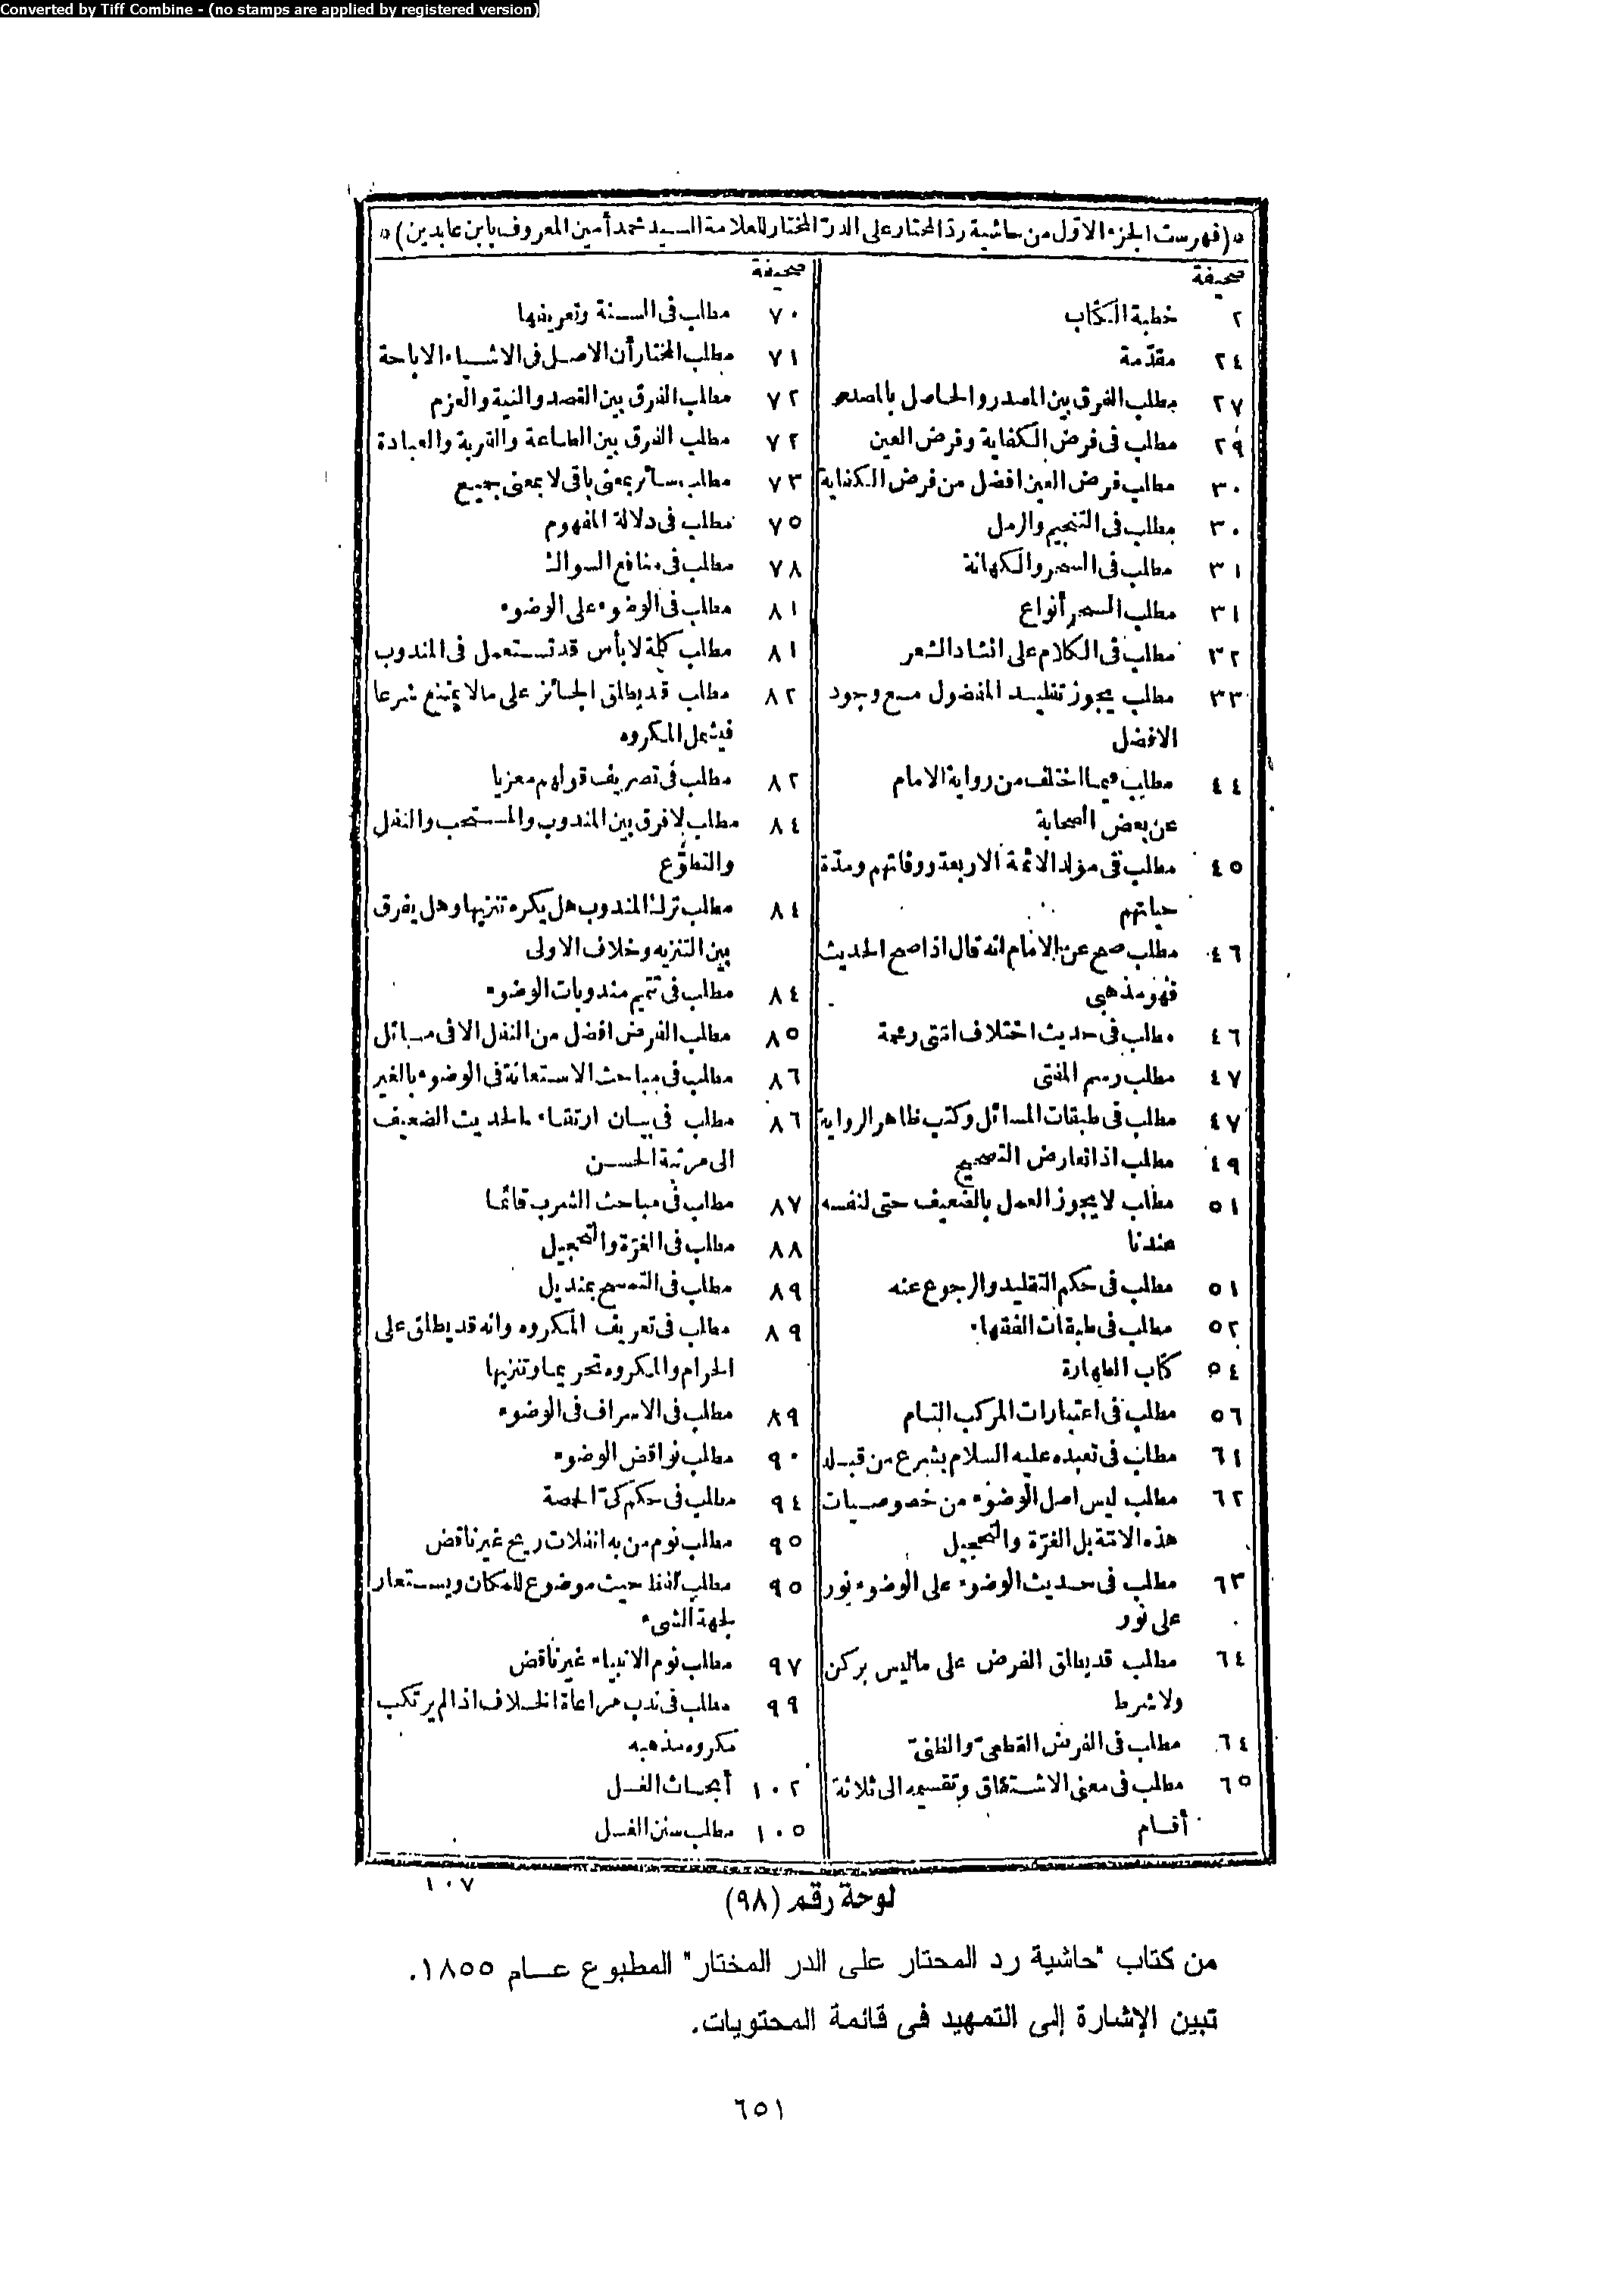 Converted by Tiff Combine - (no stamps are applied by registered version)
(فهرست الجزء الاوّل من حاشية ردّ المحتار على الدرّ المختار للعلامة السيد محمد أمين المعروف بابن عابدين)
صحيفة
٢ خطبة الكتاب
٢٤ مقدّمة
٢٧ مطلب الفرق بين المصدر والحاصل بالمصدر
٢٩ مطلب فى فرض الكفاية وفرض العين
٣٠ مطلب فرض العين افضل من فرض الكفاية
٣٠ مطلب فى التنجيم والرمل
٣١ مطلب فى السحر والكهانة
٣١ مطلب السحر أنواع
٣٢ مطلب فى الكلام على انشاد الشعر
٣٣ مطلب يجوز تقليد المفضول مع وجود
الافضل
٤٤ مطلب فيما اختلف من رواية الامام
عن بعض الصحابة
٤٥ مطلب فى مولد الائمة الاربعة ووفاتهم ومدّة
حياتهم
٤٦ مطلب صح عن الامام انه قال اذا صح الحديث
فهو مذهبى
٤٦ مطلب فى حديث اختلاف امّتى رحمة
٤٧ مطلب رسم المفتى
٤٧ مطلب فى طبقات المسائل وكتب ظاهر الرواية
٤٩ مطلب اذا تعارض التصحيح
٥١ مطلب لا يجوز العمل بالضعيف حتى لنفسه
عندنا
٥١ مطلب فى حكم التقليد والرجوع عنه
٥٢ مطلب فى طبقات الفقهاء
٥٤ كتاب الطهارة
٥٦ مطلب فى اعتبارات المركب التام
٦١ مطلب فى تعبده عليه السلام بشرع من قبله
٦٢ مطلب ليس اصل الوضوء من خصوصيات
هذه الامّة بل الغرّة والتحجيل
٦٣ مطلب فى حديث الوضوء على الوضوء نور
على نور
٦٤ مطلب قد يطلق الفرض على ما ليس بركن
ولا شرط
٦٤ مطلب فى الفرض القطعىّ والظنىّ
٦٥ مطلب فى معنى الاشتقاق وتقسيمه الى ثلاثة
أقسام
صحيفة
٧٠ مطلب فى السنة وتعريفها
٧١ مطلب المختار أن الاصل فى الاشياء الاباحة
٧٢ مطلب الفرق بين القصد والنية والعزم
٧٢ مطلب الفرق بين الطاعة والقربة والعبادة
٧٣ مطلب سائر بمعنى باقى لا بمعنى جميع
٧٥ مطلب فى دلالة المفهوم
٧٨ مطلب فى منافع السواك
٨١ مطلب فى الوضوء على الوضوء
٨١ مطلب كلمة لا بأس قد تستعمل فى المندوب
٨٢ مطلب قد يطلق الجائز على ما لا يمتنع شرعا
فيشمل المكروه
٨٢ مطلب فى تصريف قولهم معزيا
٨٤ مطلب لا فرق بين المندوب والمستحب والنفل
والتطوّع
٨٤ مطلب ترك المندوب هل يكره تنزيها وهل يفرق
بين التنزيه وخلاف الاولى
٨٤ مطلب فى تتميم مندوبات الوضوء
٨٥ مطلب الفرض افضل من النفل الا فى مسائل
٨٦ مطلب فى مباحث الاستعانة فى الوضوء بالغير
٨٦ مطلب فى بيان ارتقاء الحديث الضعيف
الى مرتبة الحسن
٨٧ مطلب فى مباحث الشرب قائما
٨٨ مطلب فى الغرّة والتحجيل
٨٩ مطلب فى التمسح بمنديل
٨٩ مطلب فى تعريف المكروه وانه قد يطلق على
الحرام والمكروه تحريما وتنزيها
٨٩ مطلب فى الاسراف فى الوضوء
٩٠ مطلب نواقض الوضوء
٩٤ مطلب فى حكم كىّ الحمصة
٩٥ مطلب نوم من به انفلات ريح غير ناقض
٩٥ مطلب لفظ حيث موضوع للمكان ويستعار
لجهة الشىء
٩٧ مطلب نوم الانبياء غير ناقض
٩٩ مطلب فى ندب مراعاة الخلاف اذا لم يرتكب
مكروه مذهبه
١٠٢ أبحاث الغسل
١٠٥ مطلب سنن الغسل
١٠٧
لوحة رقم (٩٨)
من كتاب "حاشية رد المحتار على الدر المختار" المطبوع عام ١٨٥٥.
تبين الإشارة إلى التمهيد فى قائمة المحتويات.
٦٥١